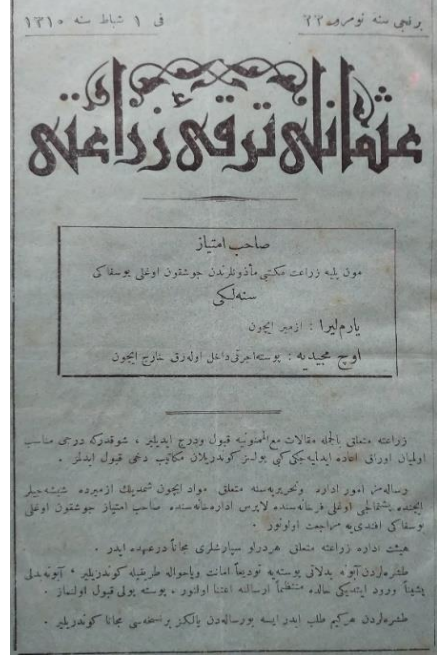 برنجی سنه نومرو ٢٢
فی ١ شباط سنه ١٣١٠
عثمانلی ترقئ زراعتی
صاحب امتیاز
مون پلیه زراعت مکتبی مأذونلرندن جوشقون اوغلی یوسفاکی
سنه لکی
یارم لیرا : ازمیر ایچون
اوچ مجیدیه : پوسته اجرتی داخل اوله رق خارج ایچون
زراعته متعلق بالجمله مقالات مع الممنونیه قبول ودرج ایدیلیر ، شوقدرکه درجی مناسب
اولمیان اوراق اعاده ایدلمیه جکی کبی پولسز کوندریلان مکاتیب دخی قبول ایدلمز .
رساله مزک امور اداره وتحریریه سنه متعلق مواد ایچون شمدیلک ازمیرده شیشه جیلر
ایچنده یشمالجی اوغلی فرخانه سنده لابرس اداره خانه سنده صاحب امتیاز جوشقون اوغلی
یوسفاکی افندی یه مراجعت اولونور
هیئت اداره زراعته متعلق هردرلو سپارشلری مجاناً درعهده ایدر .
طشره لردن آبونه بدلاتی پوسته یه تودیعاً امانت ویاحواله طریقیله کوندریلیر ، آبونه بدلی
پشیناً ورود ایتدیکی حالده منتظماً ارسالنه اعتنا اولنور ، پوسته پولی قبول اولنماز .
طشره لردن هرکیم طلب ایدر ایسه بورساله دن یالکز بر نسخه سی مجاناً کوندریلیر .